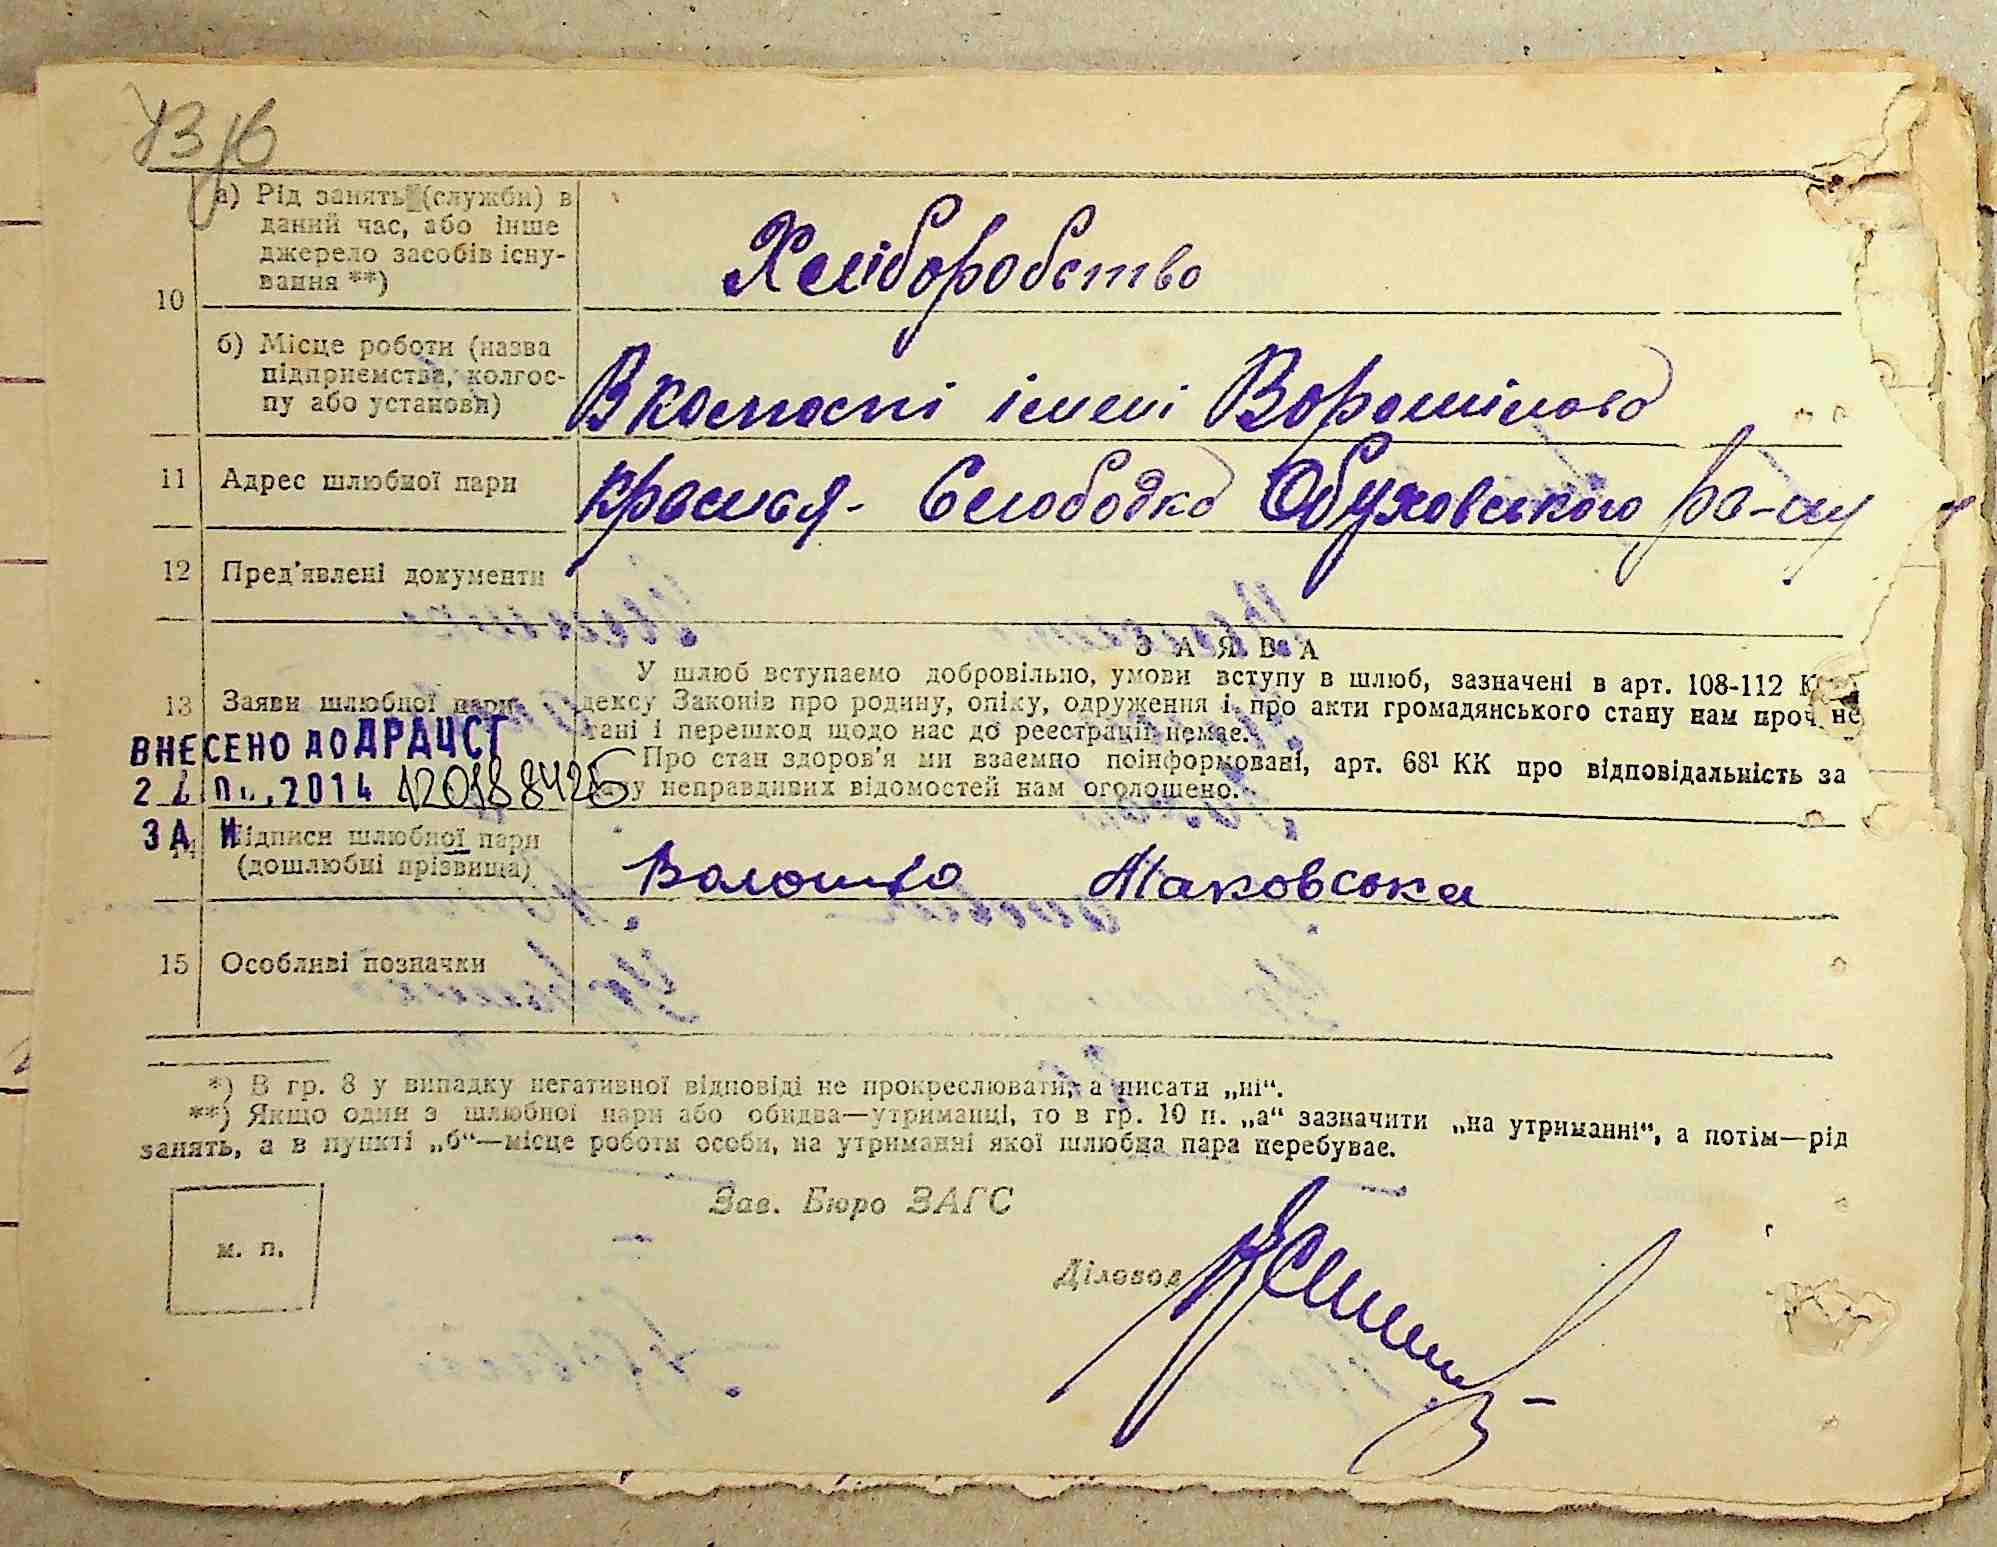 а) Рід занять (служби) в
даний час, або інше
джерело засобів існу-
вання **)
Хліборобство
10
б) Місце роботи (назва
підприємства, колгос-
пу або установи)
В колгоспі імені Ворошилова
11 Адрес шлюбної пари
Красная-Слободка Обуховського ра-ну
12 Пред'явлені документи
ЗАЯВА
У шлюб вступаємо добровільно, умови вступу в шлюб, зазначені в арт. 108-112 К
13 Заяви шлюбної пари
дексу Законів про родину, опіку, одруження і про акти громадянського стану нам проч не
тані і перешкод щодо нас до реєстрації немає.
ВНЕСЕНО ДО ДРАЦСГ
Про стан здоров'я ми взаємно поінформовані, арт. 68¹ КК про відповідальність за
2014 120188425
неправдивих відомостей нам оголошено.
Підписи шлюбної пари
(дошлюбні прізвища)
Волошко Маковська
15 Особливі позначки
*) В гр. 8 у випадку негативної відповіді не прокреслювати, а писати „ні“.
**) Якщо один з шлюбної пари або обидва—утриманці, то в гр. 10 п. „а“ зазначити „на утриманні“, а потім—рід
занять, а в пункті „б“—місце роботи особи, на утриманні якої шлюбна пара перебуває.
Зав. Бюро ЗАГС
м. п.
Діловод